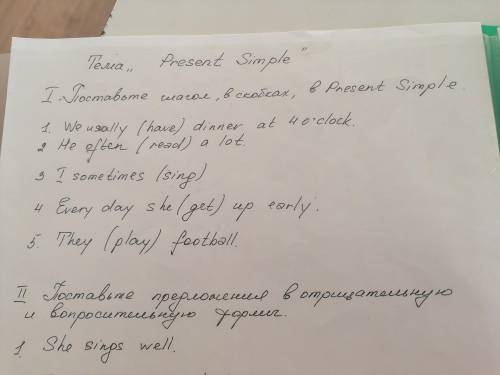 Тема „ Present Simple "
I. Поставьте глагол, в скобках, в Present Simple.
1. We usally (have) dinner at 4 o'clock.
2 He often (read) a lot.
3 I sometimes (sing)
4 Every day she (get) up early.
5. They (play) football.
II Поставьте предложения в отрицательную
и вопросительную формы.
1. She sings well.